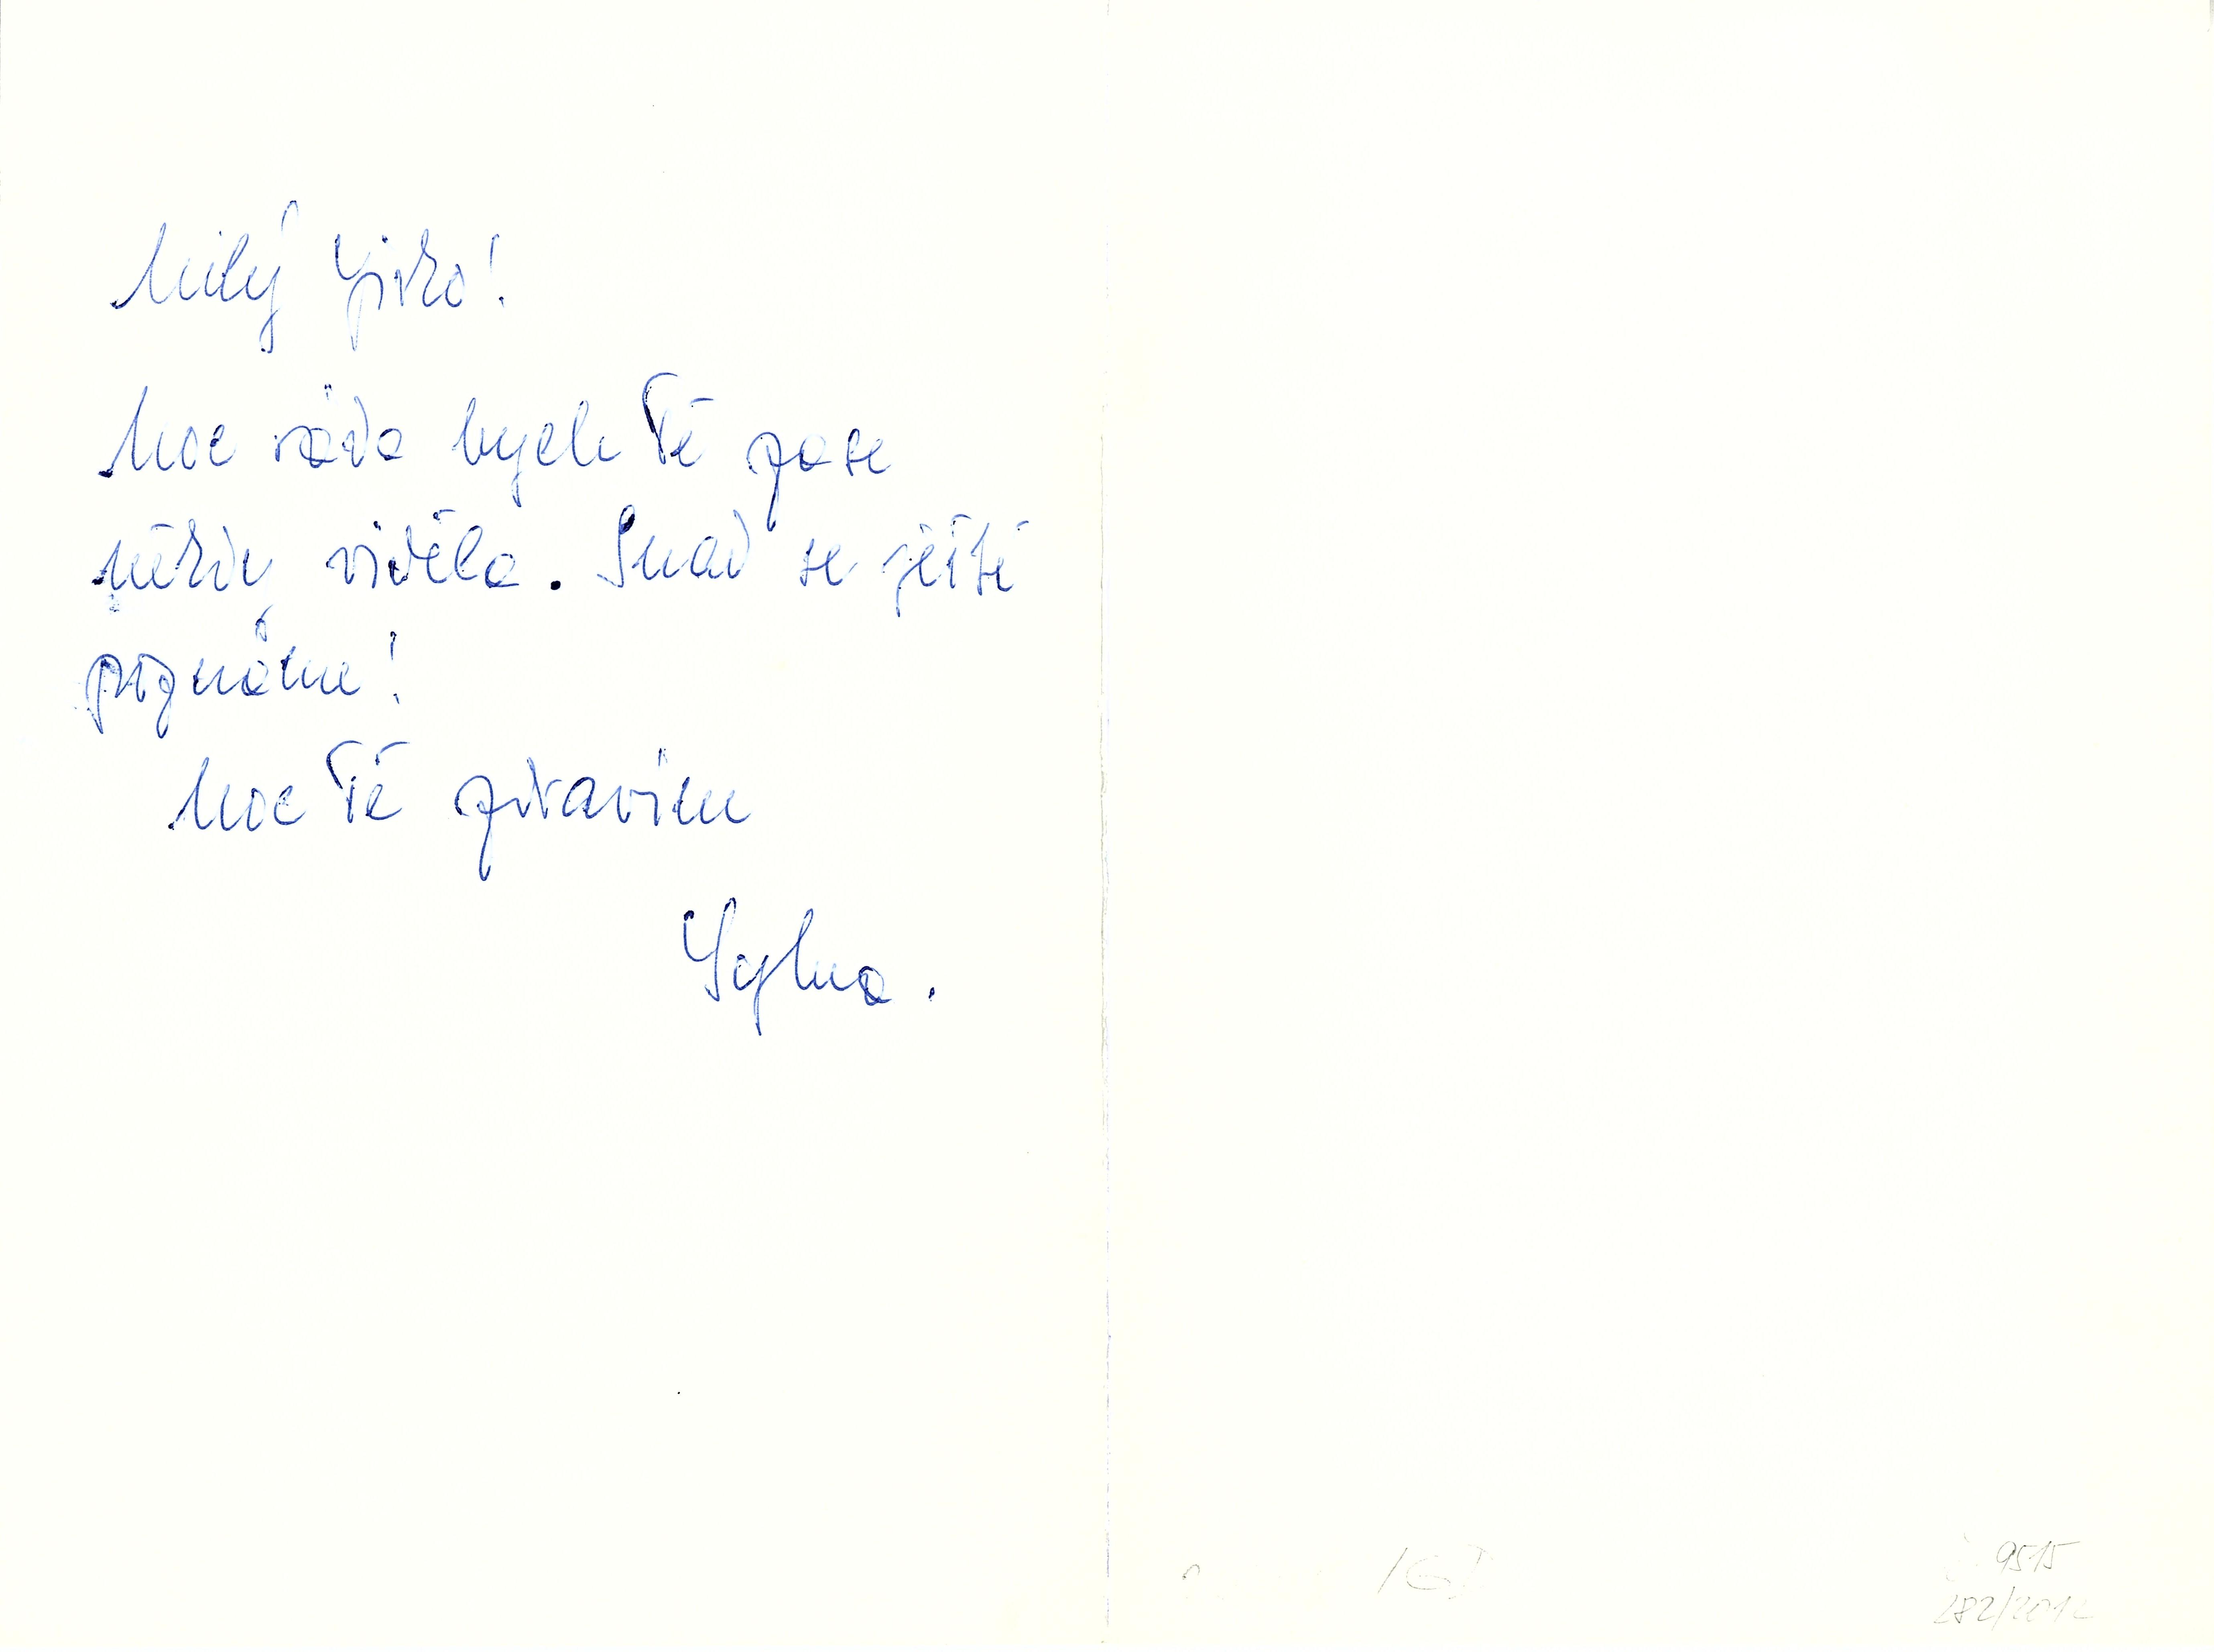 Milý Jirko!
Moc ráda bych Tě zase
někdy viděla. Snad se ještě
poznáme!
Moc Tě zdravím
Sylva.
9515
282/2012